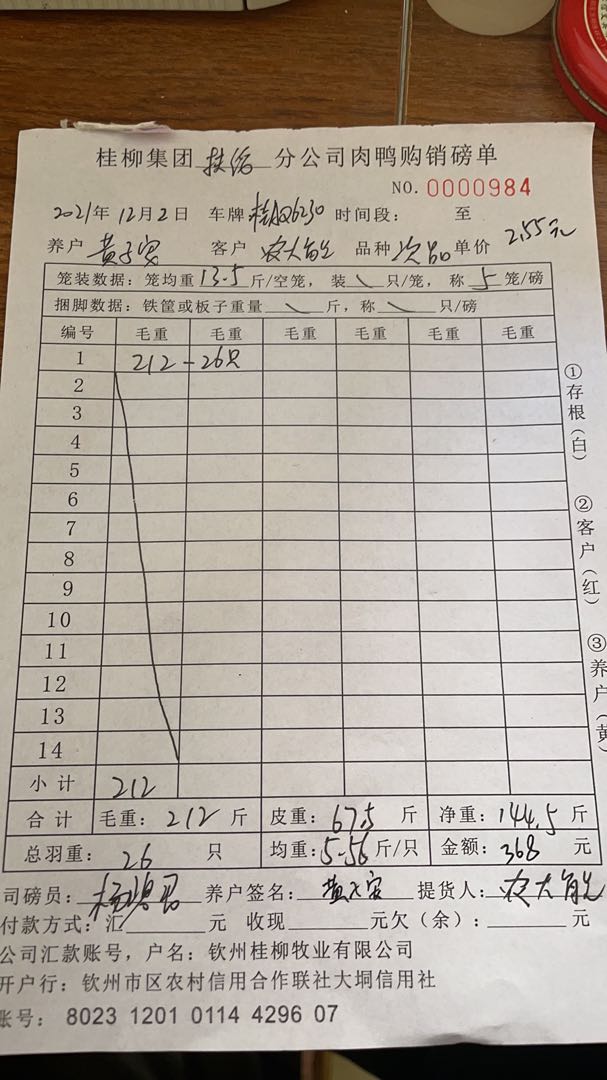 桂柳集团扶绥分公司肉鸭购销磅单
NO. 0000984
2021年12月2日 车牌 6230 时间段： 至
养户 黄 客户 农大 品种 次品 单价 2.55元
笼装数据：笼均重13.5斤/空笼，装\只/笼，称5笼/磅
捆脚数据：铁筐或板子重量\斤，称\只/磅
编号 毛重 毛重 毛重 毛重 毛重 毛重
1 212-26只
2
3
4
5
6
7
8
9
10
11
12
13
14
小计 212
合计 毛重：212斤 皮重：67.5斤 净重：144.5斤
总羽重：26只 均重：5.56斤/只 金额：368元
司磅员： 养户签名：黄 提货人：农大
付款方式：汇 元 收现 元欠（余）： 元
公司汇款账号，户名：钦州桂柳牧业有限公司
开户行：钦州市区农村信用合作联社大垌信用社
账号： 8023 1201 0114 4296 07
①存根（白）
②客户（红）
③养户（黄